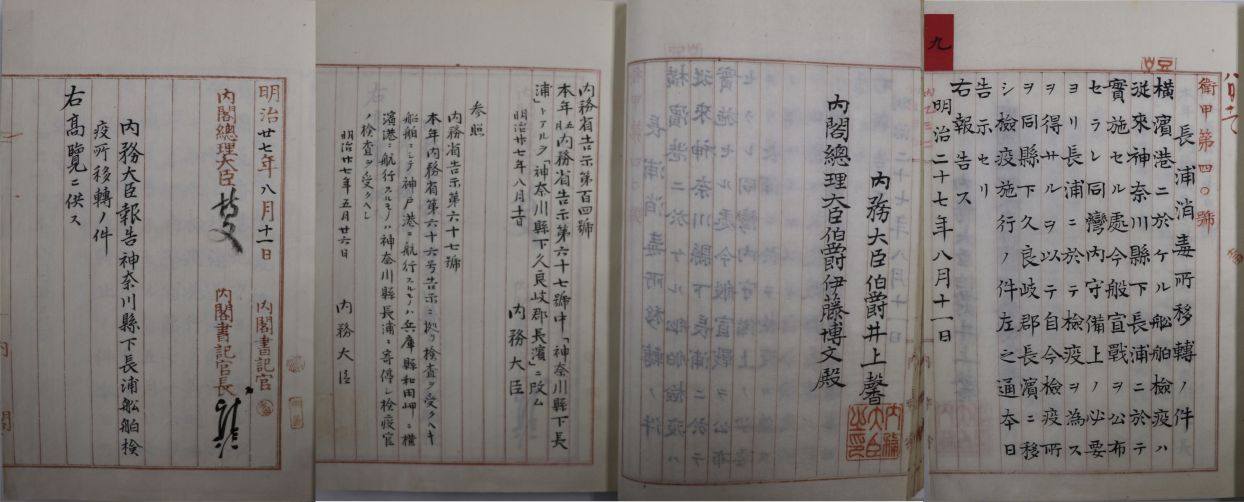 九
衛甲第四〇號
長浦消毒所移轉ノ件
横濱港ニ於ケル舩舶檢疫ハ
従來神奈川縣下長浦ニ於テ
實施セル處今般宣戰ヲ公布
セラレ同灣内守備上ノ必要
ヨリ長浦ニ於テ檢疫ヲ為ス
ヲ得サルヲ以テ自今檢疫所
ヲ同縣下久良岐郡長濱ニ移
シ檢疫施行ノ件左之通本日
告示セリ
右報告ス
明治二十七年八月十一日
内務大臣伯爵井上馨
内務大臣之印
内閣總理大臣伯爵伊藤博文殿
内務省告示第百四號
本年五月内務省告示第六十七號中「神奈川縣下長
浦」トアルヲ「神奈川縣下久良岐郡長濱」ニ改ム
明治廿七年八月十一日 内務大臣
参照
内務省告示第六十七號
本年内務省第六十六号告示ニ拠リ検査ヲ受クヘキ
船舶ニシテ神戸港ニ航行スルモノハ兵庫縣和田岬ニ横
濱港ニ航行スルモノハ神奈川縣長浦ニ寄停シ検疫官
ノ検査ヲ受クヘシ
明治廿七年五月廿六日 内務大臣
明治廿七年八月十一日 内閣書記官
内閣總理大臣 内閣書記官長
内務大臣報告神奈川縣下長浦舩舶檢
疫所移轉ノ件
右高覽ニ供ス
内閣